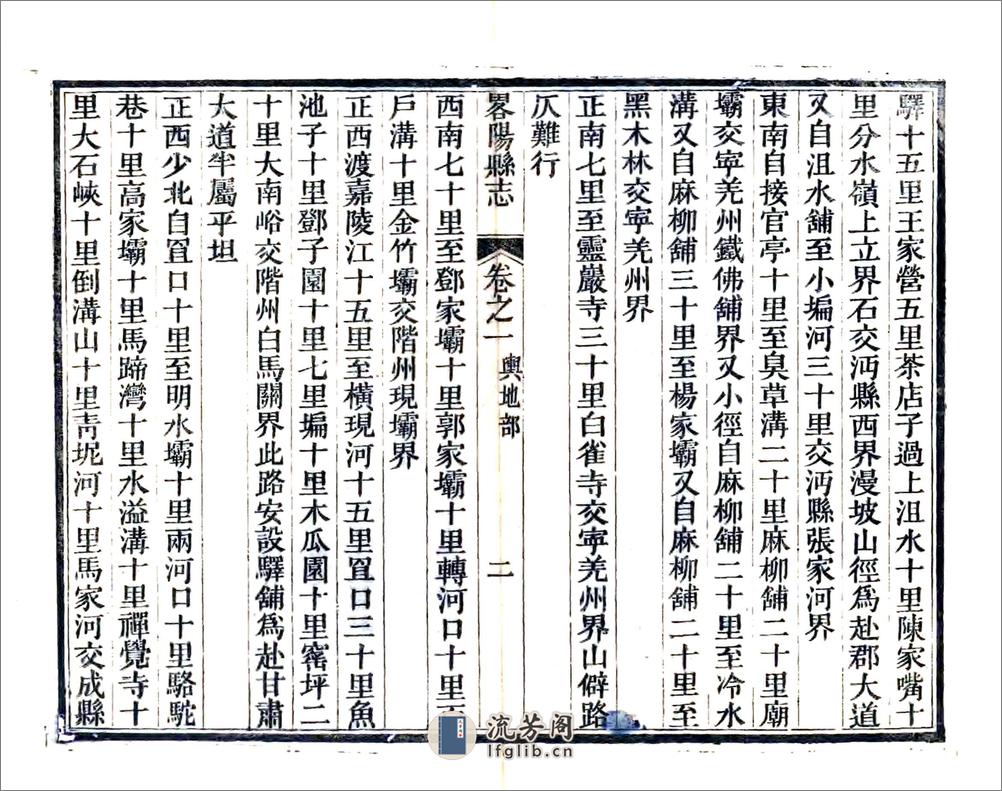 驛十五里王家營五里茶店子過上沮水十里陳家嘴十
里分水嶺上立界石交沔縣西界漫坡山徑爲赴郡大道
又自沮水舖至小塥河三十里交沔縣張家河界
東南自接官亭十里至臭草溝二十里麻柳舖二十里廟
壩交寧羌州鐵佛舖界又小徑自麻柳舖二十里至冷水
溝又自麻柳舖三十里至楊家壩又自麻柳舖二十里至
黑木林交寧羌州界
正南七里至靈巖寺三十里白雀寺交寧羌州界山僻路
仄難行
畧陽縣志
卷之一
輿地部
二
西南七十里至鄧家壩十里郭家壩十里轉河口十里
戶溝十里金竹壩交階州現壩界
正西渡嘉陵江十五里至橫現河十五里罝口三十里魚
池子十里鄧子園十里七里塥十里木瓜園十里窰坪二
十里大南峪交階州白馬關界此路安設驛舖爲赴甘肅
大道半屬平坦
正西少北自罝口十里至明水壩十里兩河口十里駱駝
巷十里高家壩十里馬蹄灣十里水溢溝十里禪覺寺十
里大石峽十里倒溝山十里靑坭河十里馬家河交成縣
流芳阁
lfglib.cn